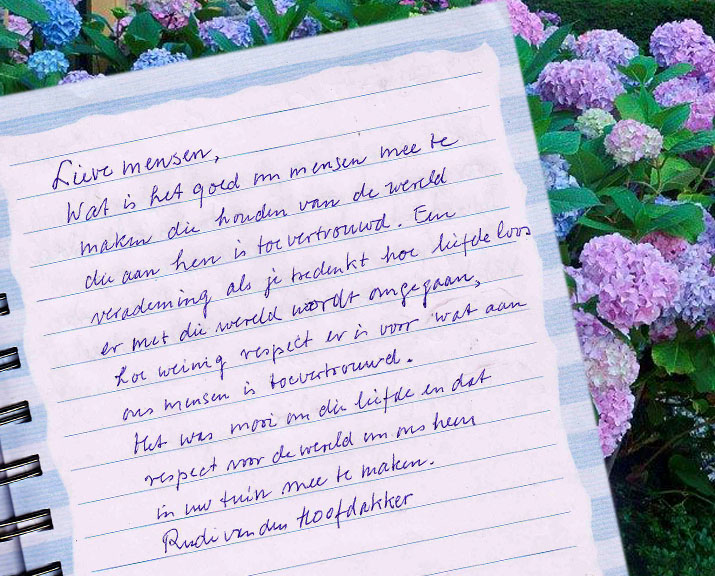 Lieve mensen,
Wat is het goed om mensen mee te
maken die houden van de wereld
die aan hen is toevertrouwd. Een
verademing als je bedenkt hoe liefdeloos
er met die wereld wordt omgegaan,
hoe weinig respect er is voor wat aan
ons mensen is toevertrouwd.
Het was mooi om die liefde en dat
respect voor de wereld om ons heen
in uw tuin mee te maken.
Rudi van den Hoofdakker